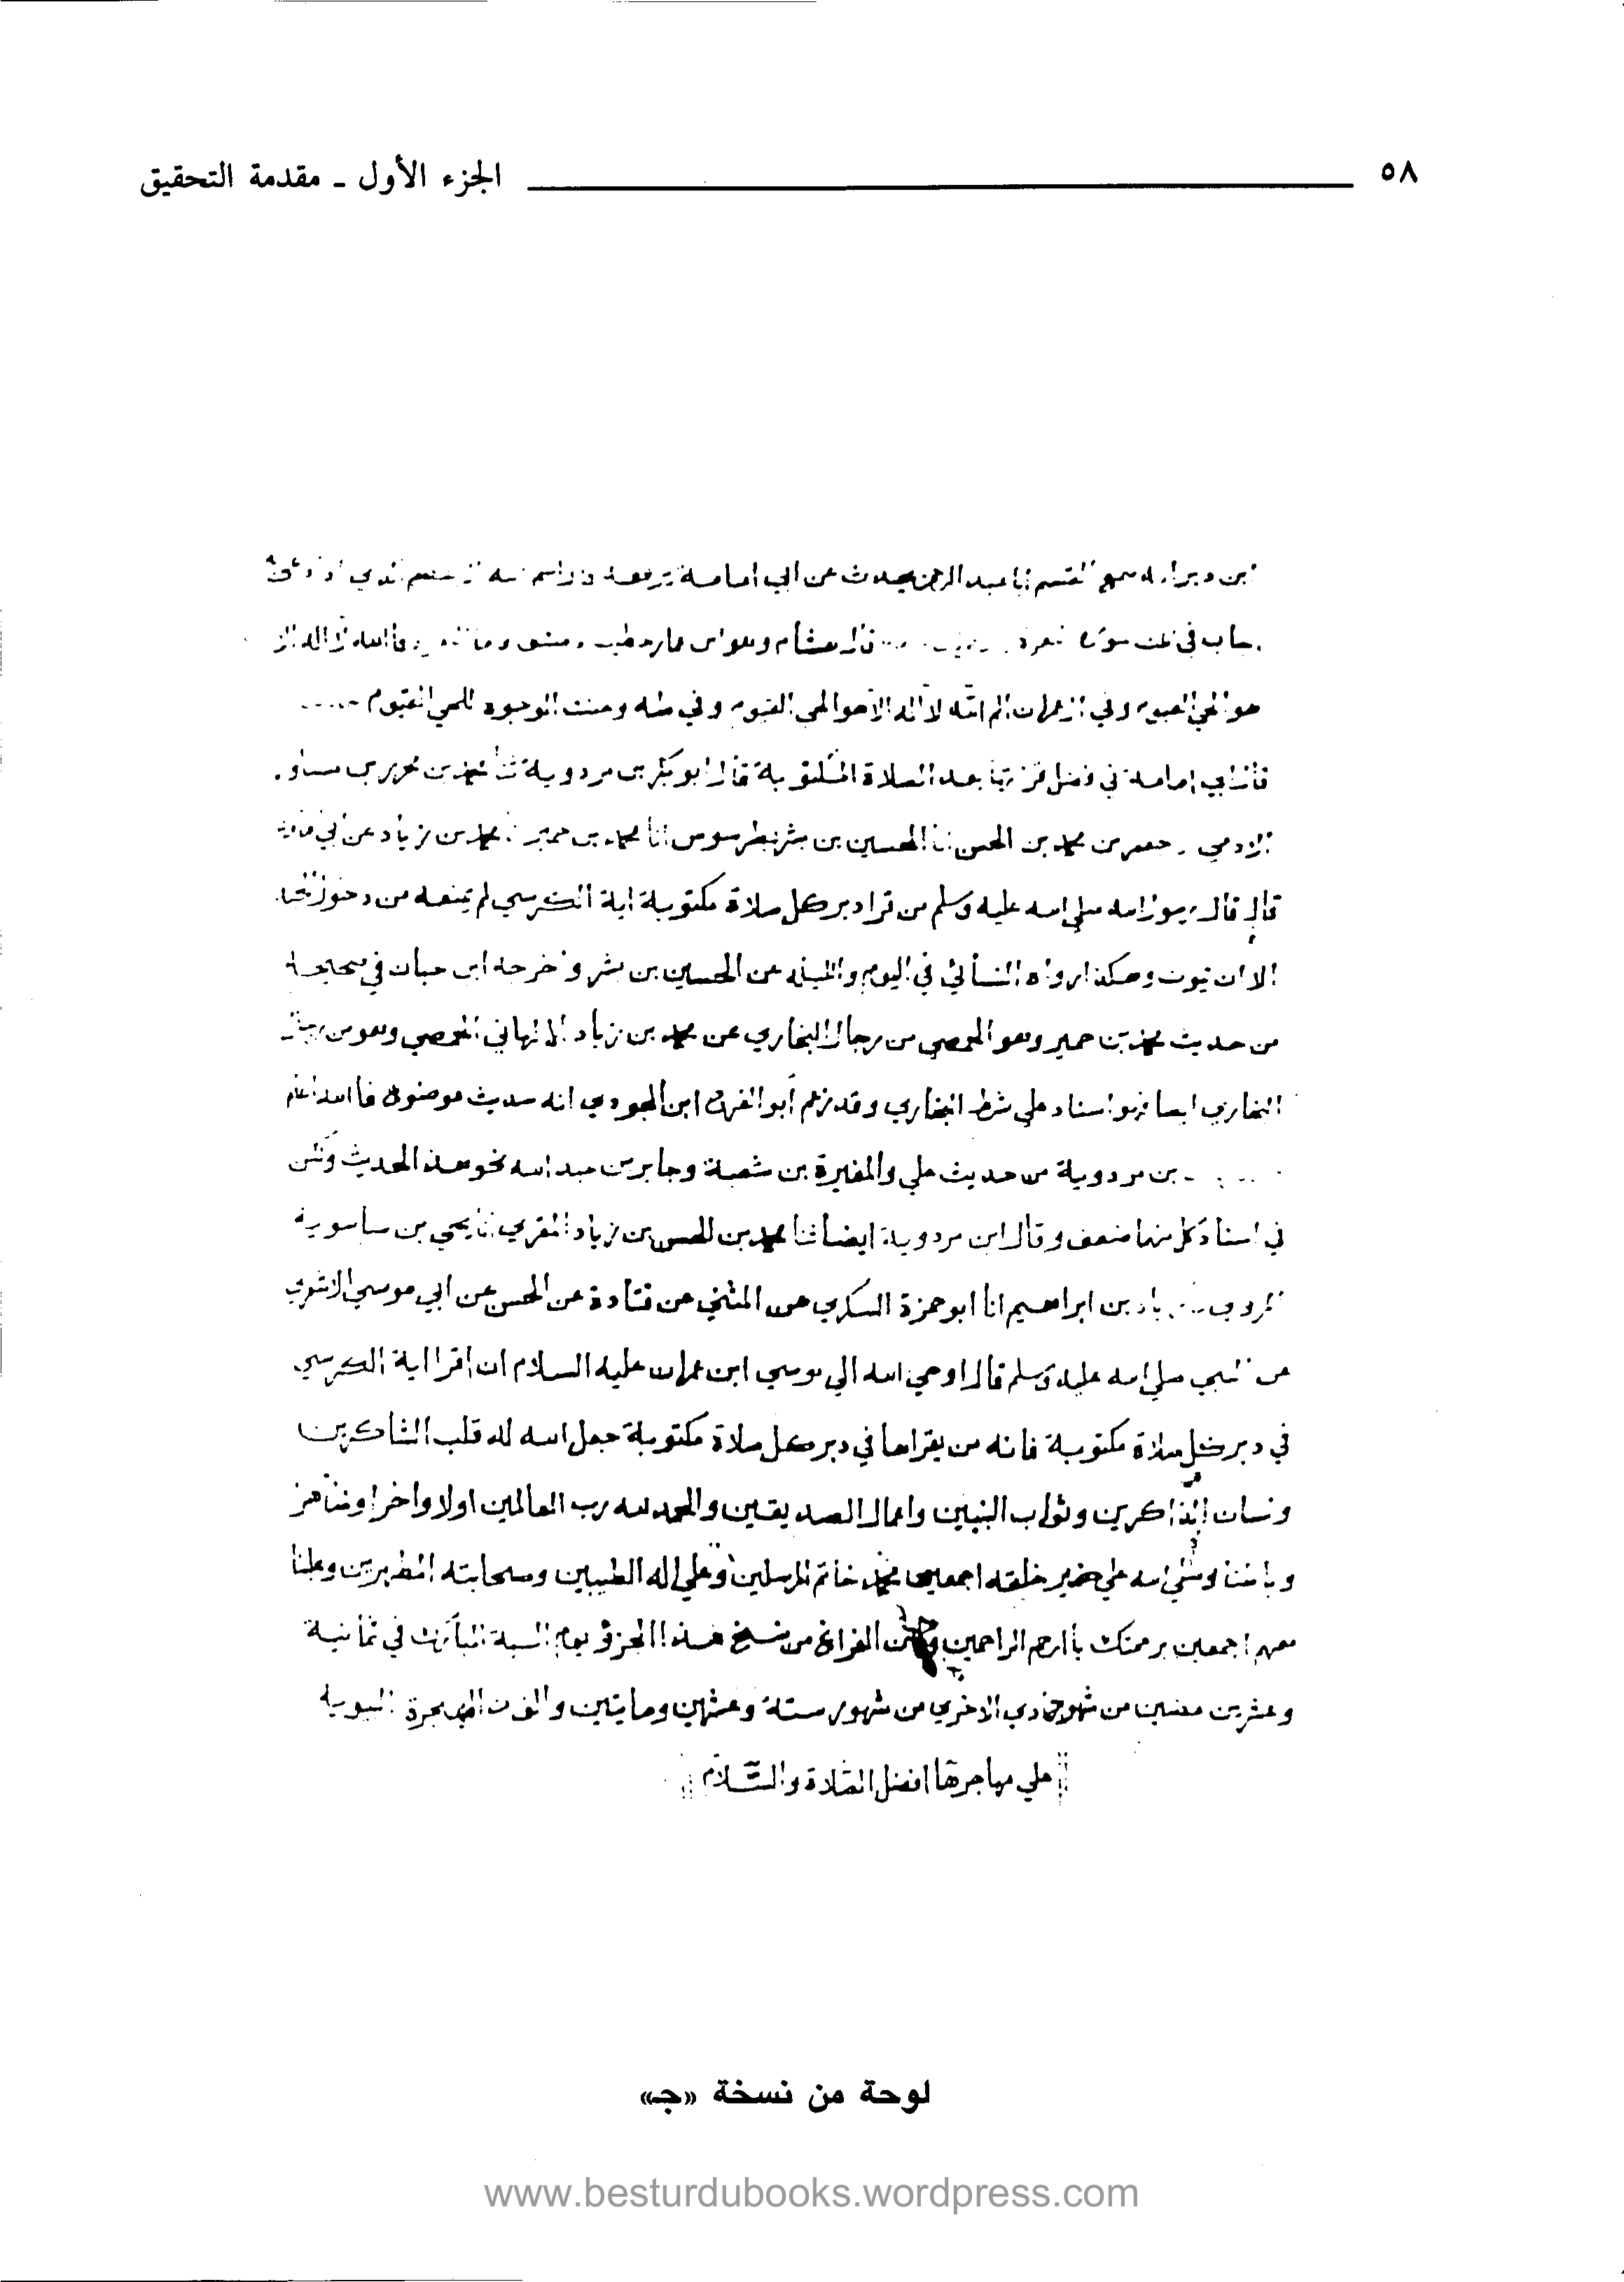 ٥٨ الجزء الأول ـ مقدمة التحقيق
عبد الرحمن يحدث عن ابي امامة يرفعه
قال هشام وهو ابن عمار خطيب دمشق
هو الحي القيوم وفي ال عمران الم الله لا اله الا هو الحي القيوم وفي طه وعنت الوجوه للحي القيوم
ابي امامة في فضل بعد الصلاة المكتوبة قال ابو بكر بن مردوية ثنا محمد بن
الادمي جعفر بن محمد بن الحسن انا الحسين بن بشر بطرسوس انا محمد بن حمير محمد بن زياد عن ابي
قال قال رسول الله صلي الله عليه وسلم من قرا دبر كل صلاة مكتوبة اية الكرسي لم يمنعه من دخول الجنة
الا ان يموت وهكذا رواه النسائي في اليوم والليله عن الحسين بن بشر واخرجه ابن حبان في صحيحه
من حديث محمد بن حمير وهو الحمصي من رجال البخاري عن محمد بن زياد الالهاني الحمصي وهو من رجال
البخاري ايضا فهو اسناد علي شرط البخاري وقد زعم أبو الفرج ابن الجوزي انه حديث موضوع فالله اعلم
بن مردوية من حديث علي والمغيرة بن شعبة وجابر بن عبد الله نحو هذا الحديث ولكن
في اسناد كل منها ضعف وقال ابن مردوية ايضا ثنا محمد بن الحسن بن زياد المقري انا يحي بن ساسويه
المروزي زياد بن ابراهيم انا ابو حمزة السكري عن المثني عن قتادة عن الحسن عن ابي موسي الاشعري
عن النبي صلي الله عليه وسلم قال اوحي الله الي موسي ابن عمران عليه السلام ان اقرا اية الكرسي
في دبر كل صلاة مكتوبة فانه من يقراها في دبر كل صلاة مكتوبة جعل الله له قلب الشاكرين
ولسان الذاكرين وثواب النبيين واعمال الصديقين والحمد لله رب العالمين اولا واخرا وظاهر
وباطنا وصلي الله علي خير خلقه اجمعين محمد خاتم المرسلين وعلي اله الطيبين وصحابته المطهرين وعلينا
معهم اجمعين برحمتك يا ارحم الراحمين الفراغ من نسخ هذا الجزؤ يوم السبة المبارك في ثمانية
وعشرين مضين من شهر جمادي الاخري من شهور ستة وعشرين ومايتين والف من الهجرة النبوية
علي مهاجرها افضل الصلاة والسلام
لوحة من نسخة «جـ»
www.besturdubooks.wordpress.com